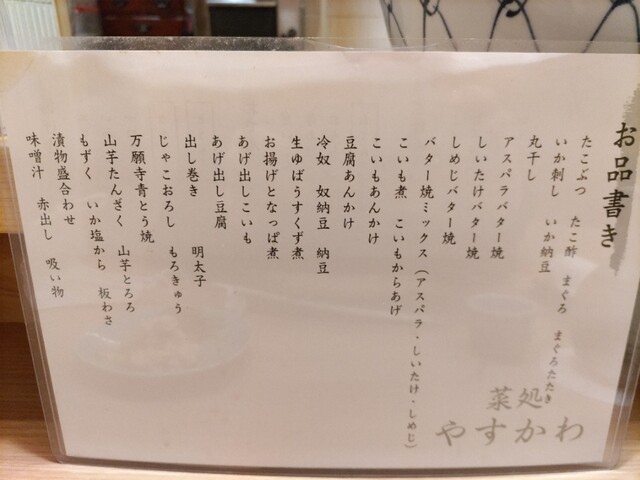 お品書き
たこぶつ　たこ酢　まぐろ　まぐろたたき
いか刺し　いか納豆
丸干し
アスパラバター焼
しいたけバター焼
しめじバター焼
バター焼ミックス（アスパラ・しいたけ・しめじ）
こいも煮　こいもからあげ
こいもあんかけ
豆腐あんかけ
冷奴　奴納豆　納豆
生ゆばうすくず煮
お揚げとなっぱ煮
あげ出しこいも
あげ出し豆腐
出し巻き　明太子
じゃこおろし　もろきゅう
万願寺青とう焼
山芋たんざく　山芋とろろ
もずく　いか塩から　板わさ
漬物盛合わせ
味噌汁　赤出し　吸い物
菜処
やすかわ